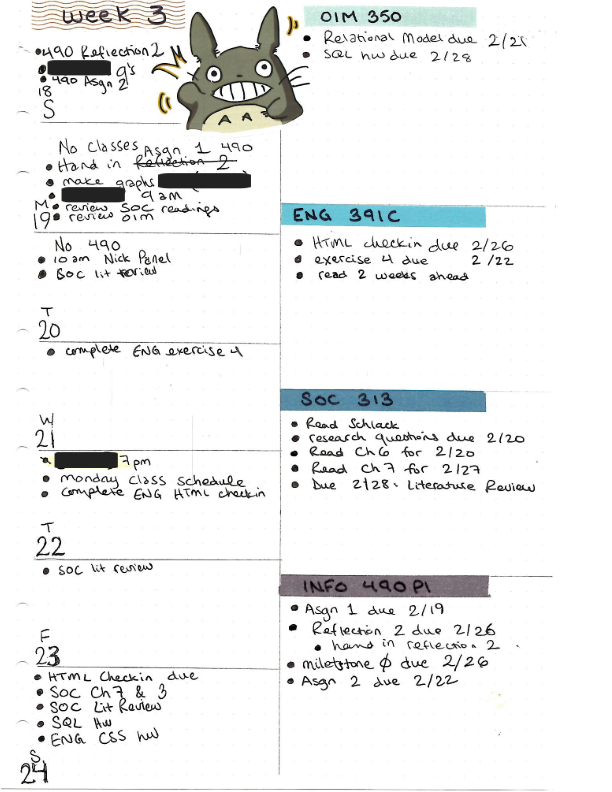 Week 3
490 Reflection 2
9's
490 Asgn 2
18
S
No Classes Asgn 1 490
Hand in Reflection 2
make graphs
9am
M
review SOC readings
19
review OIM
No 490
10am Nick Panel
SOC lit review
T
20
complete ENG exercise 4
W
21
7pm
monday class schedule
complete ENG HTML checkin
T
22
SOC lit review
F
23
HTML Checkin due
SOC Ch 7 & 3
SOC Lit Review
SQL HW
ENG CSS hw
S
24
OIM 350
Relational Model due 2/21
SQL hw due 2/28
ENG 391C
HTML checkin due 2/26
exercise 4 due 2/22
read 2 weeks ahead
SOC 313
Read Schlack
research questions due 2/20
Read Ch 6 for 2/20
Read Ch 7 for 2/27
Due 2/28 - Literature Review
INFO 490PI
Asgn 1 due 2/19
Reflection 2 due 2/26
hand in reflection 2
milestone 0 due 2/26
Asgn 2 due 2/22